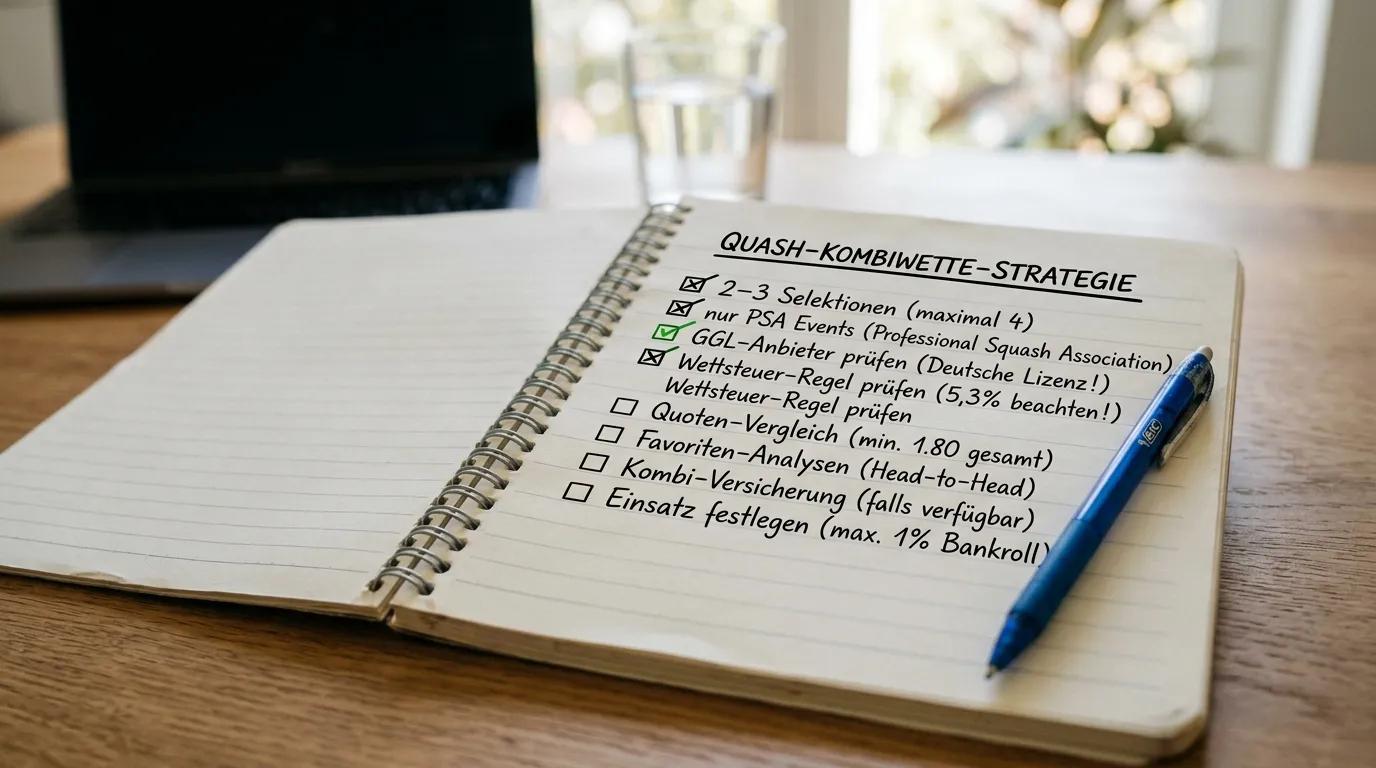 QUASH-KOMBIWETTE-STRATEGIE
2–3 Selektionen (maximal 4)
nur PSA Events (Professional Squash Association)
GGL-Anbieter prüfen (Deutsche Lizenz!)
Wettsteuer-Regel prüfen (5,3% beachten!)
Wettsteuer-Regel prüfen
Quoten-Vergleich (min. 1.80 gesamt)
Favoriten-Analysen (Head-to-Head)
Kombi-Versicherung (falls verfügbar)
Einsatz festlegen (max. 1% Bankroll)
BIC